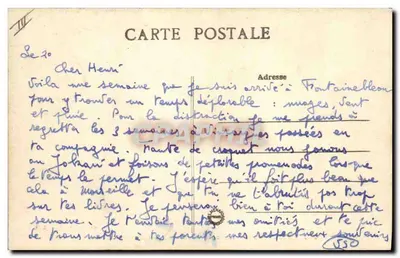 III
CARTE POSTALE
Le 20
Adresse
Cher Henri
Voila une semaine que je suis arrivé à Fontainebleau
pour y trouver un temps déplorable : nuages, vent
et pluie. Pour la distraction je me prends à
regretter les 3 semaines passées en
ta compagnie. Faute de croquet nous jouons
au Jokari et faisons de petites promenades lorsque
le temps le permet. J'espère qu'il fait plus beau que
cela à Marseille et que tu ne t'abrutis pas trop
sur tes livres. Je penserai bien à toi durant cette
semaine. Je t'envoie toutes mes amitiés et te prie
de transmettre à tes parents mes respectueux souvenirs